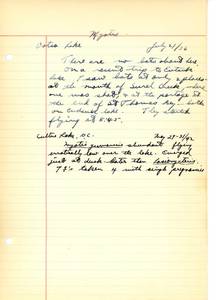 Myotis
Lake July 21/36
There are no bats about here.
On a second trip to
Lake, I saw bats at only 2 places
at the mouth of Creek, where
one was shot, and at the portage at
the end of St Thomas Bay, both
on Lake. They started
flying at 8:45.
Cultus Lake, B.C. May 28-31/42
Myotis yumanensis abundant flying
erratically low over the lake. Emerged
just at dusk later than
7 taken with single